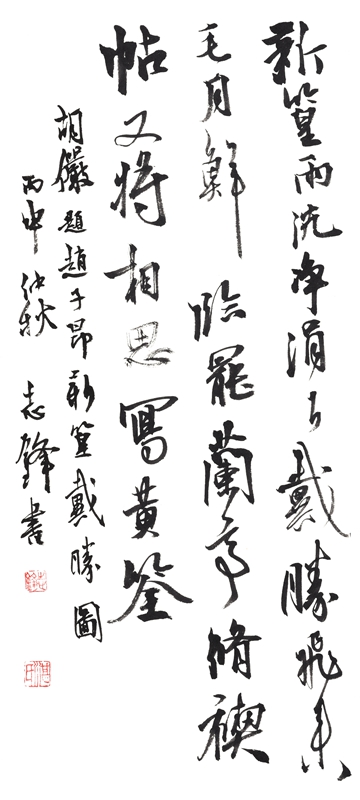 新篁雨洗净涓〻戴勝飛来
毛月鮮臨罷蘭亭脩禊
帖又将相思寫黄筌
胡儼題趙子昂新篁戴勝圖
丙申仲秋志鋒書